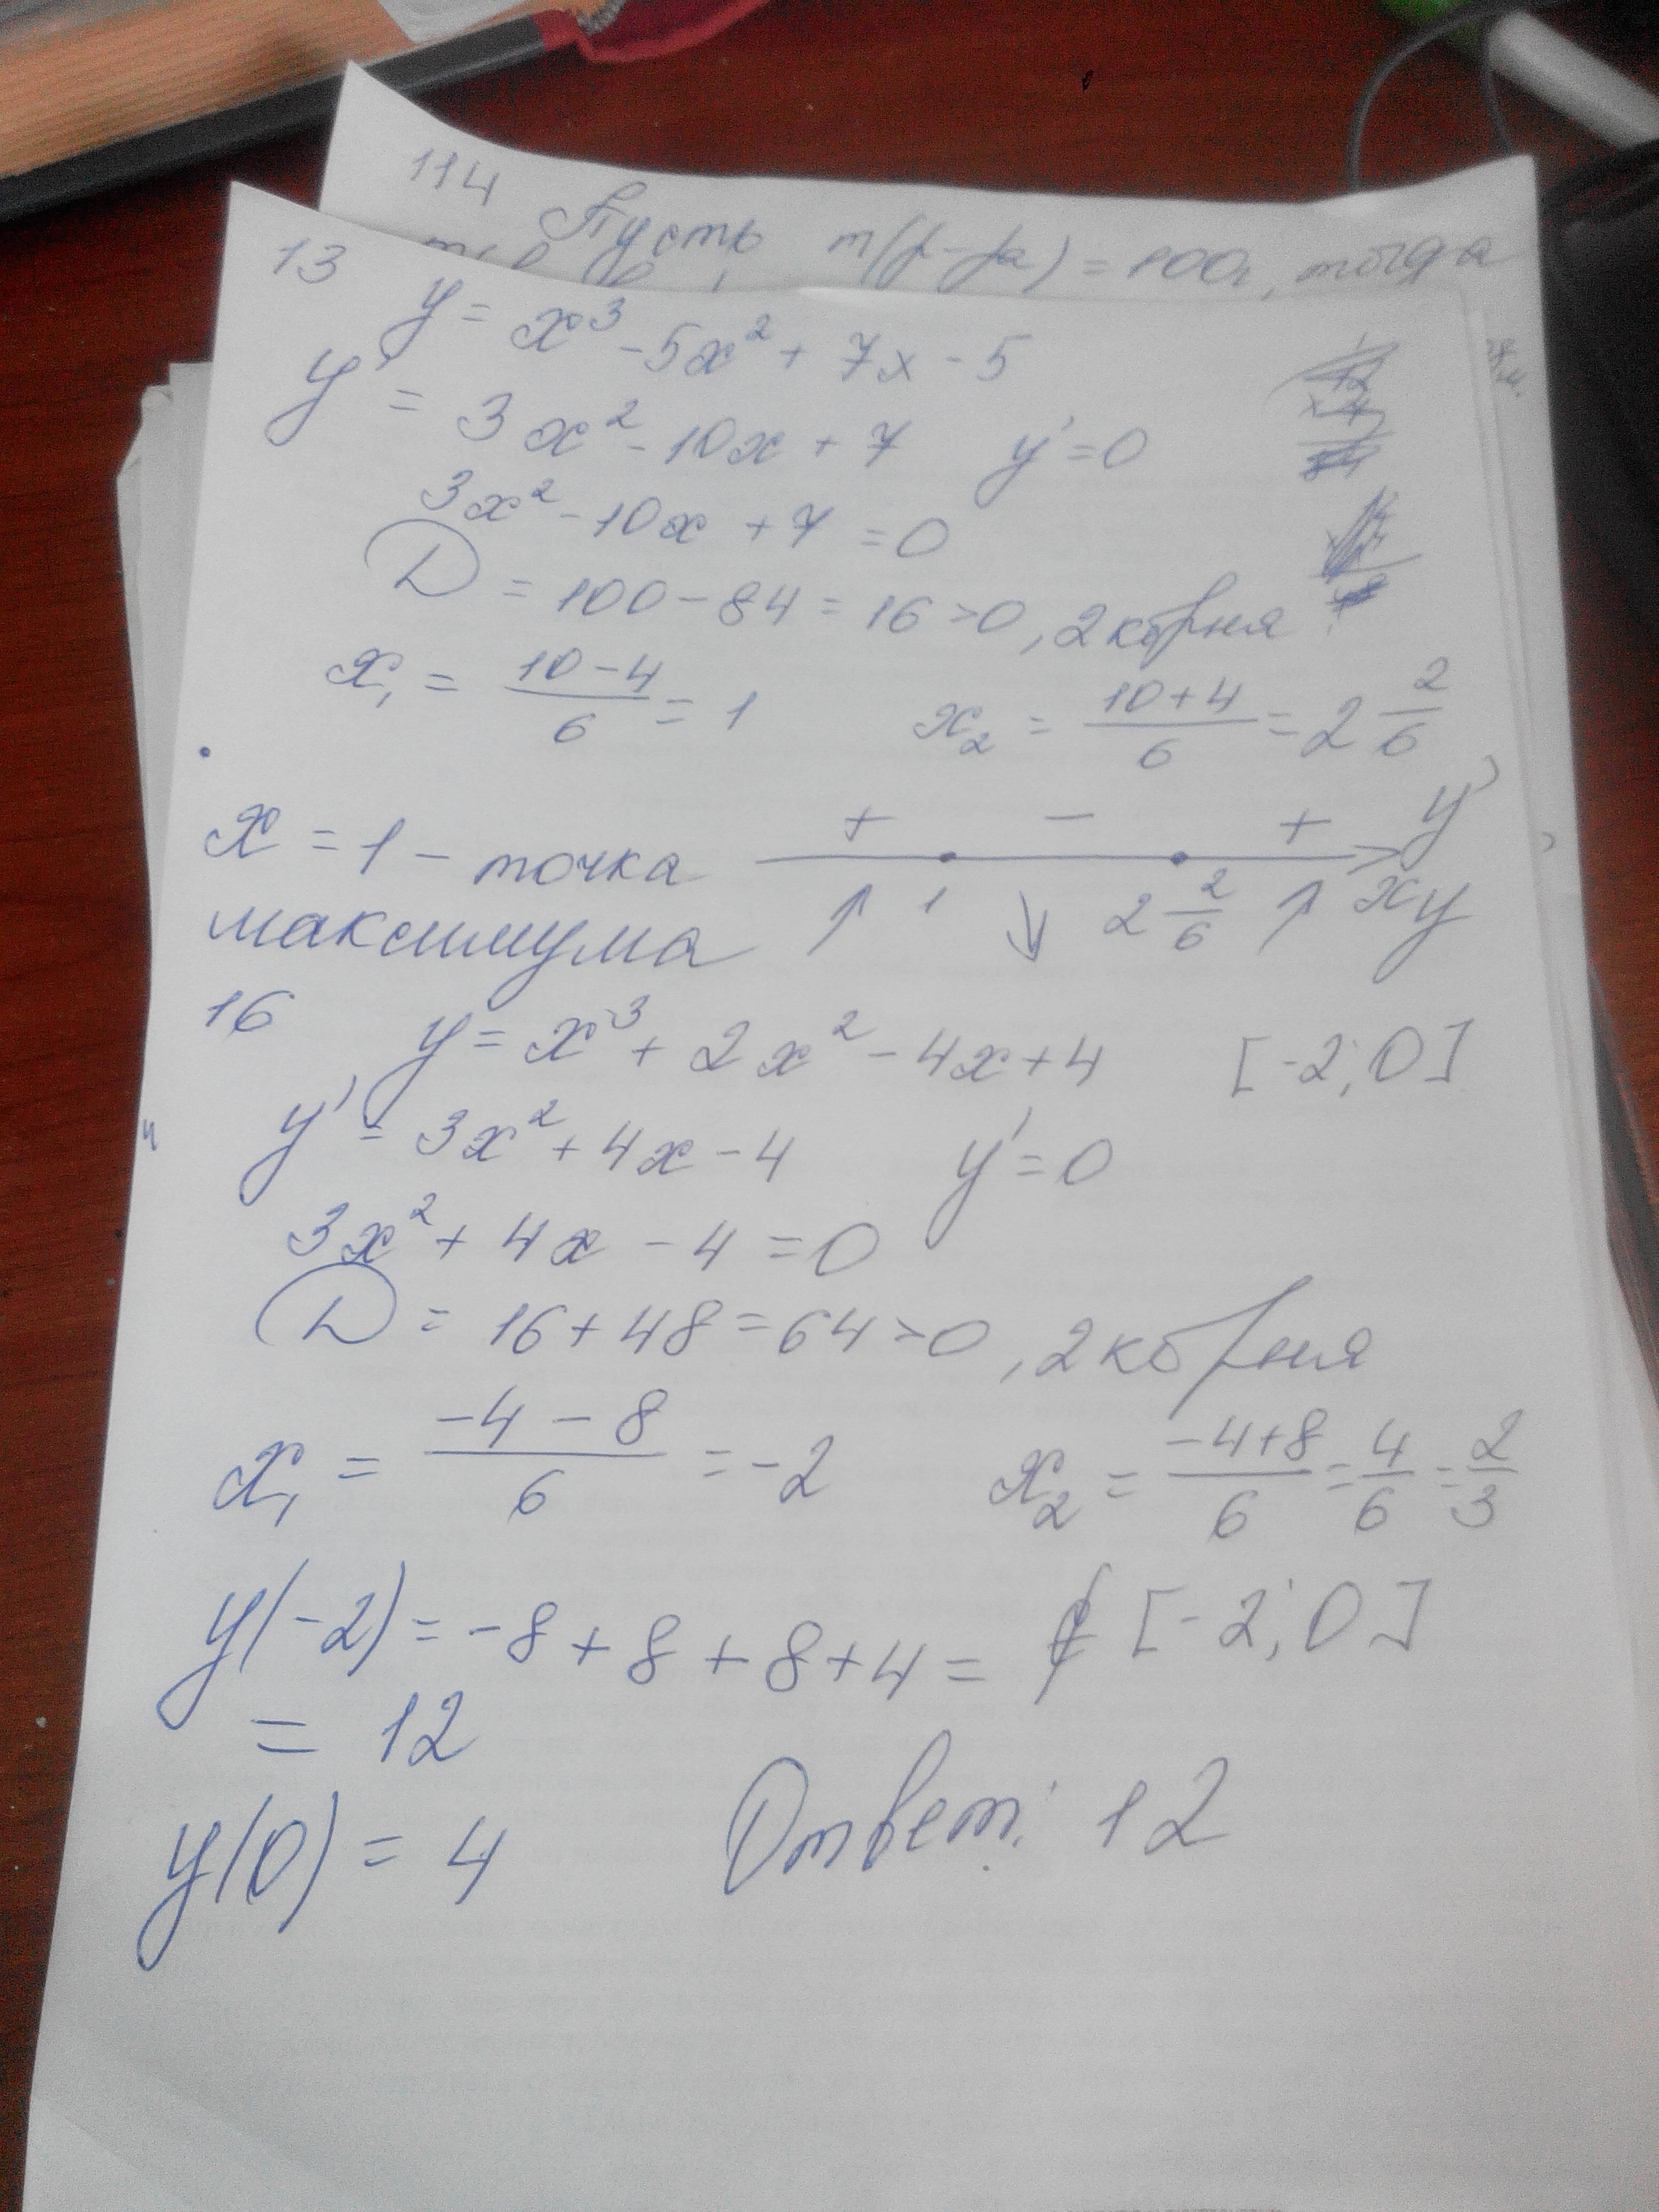 114 Пусть m(р-ра) = 100г, тогда
13
y = x³ - 5x² + 7x - 5
y' = 3x² - 10x + 7 y' = 0
3x² - 10x + 7 = 0
D = 100 - 84 = 16 > 0, 2 корня
x₁ = (10 - 4)/6 = 1 x₂ = (10 + 4)/6 = 2 2/6
x = 1 - точка
максимума
+ - + y'
↑ 1 ↓ 2 2/6 ↑ x y
16 y = x³ + 2x² - 4x + 4 [-2; 0]
y' = 3x² + 4x - 4 y' = 0
3x² + 4x - 4 = 0
D = 16 + 48 = 64 > 0, 2 корня
x₁ = (-4 - 8)/6 = -2 x₂ = (-4 + 8)/6 = 4/6 = 2/3
y(-2) = -8 + 8 + 8 + 4 = ∉ [-2; 0]
= 12
y(0) = 4 Ответ: 12